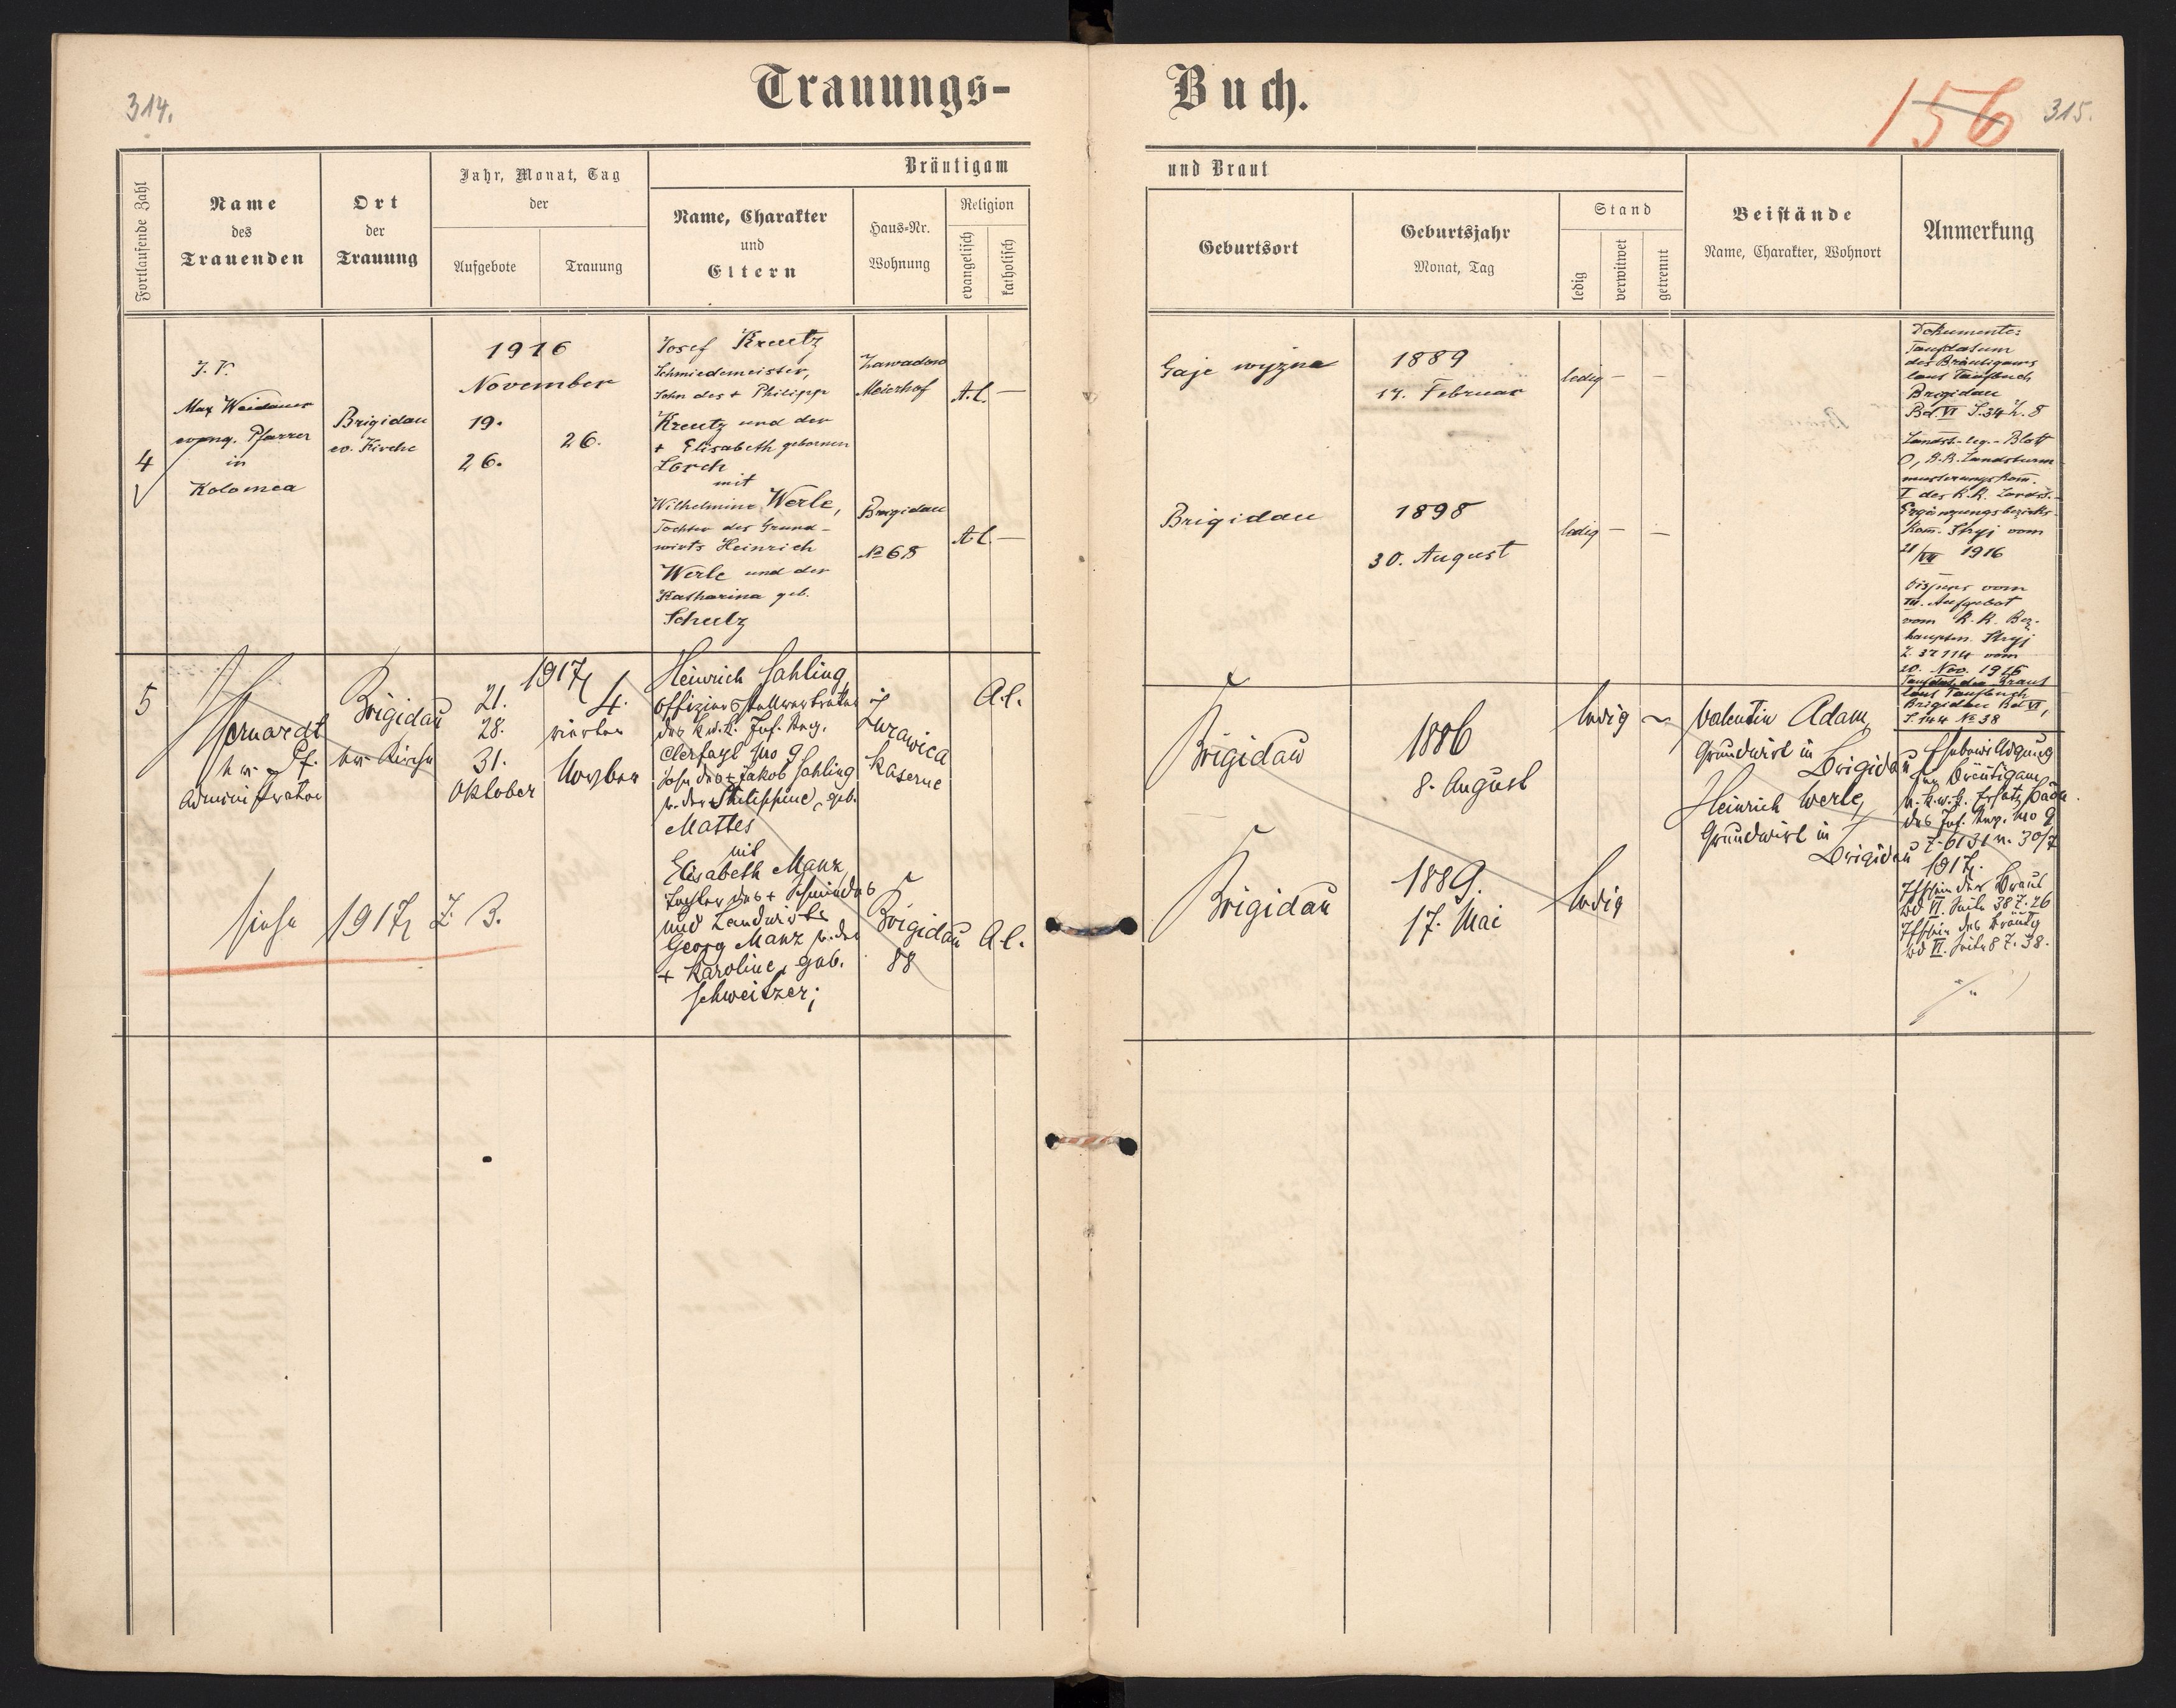 314.
Trauungs-
Buch.
156
315.
Fortlaufende Zahl
Name
des
Trauenden
Ort
der
Trauung
Jahr, Monat, Tag
der
Aufgebote
Trauung
Bräutigam
Name, Charakter
und
Eltern
Haus-Nr.
Wohnung
Religion
evangelisch
katholisch
und Braut
Geburtsort
Geburtsjahr
Monat, Tag
Stand
ledig
verwitwet
getrennt
Beistände
Name, Charakter, Wohnort
Anmerkung
4
J. V.
Max Weidauer
evang. Pfarrer
in
Kolomea
Brigidau
ev. Kirche
1916
November
19.
26.
26.
Josef Kreutz
Schmiedemeister,
Sohn des + Philipp
Kreutz und der
+ Elisabeth gebornen
Lorch
mit
Wilhelmine Werle,
Tochter des Grund-
wirts Heinrich
Werle und der
Katharina geb.
Schulz
Zawadow
Meierhof
Brigidau
№ 68
A.C. —
A.C. —
Gaje wyzne
Brigidau
1889
14. Februar
1898
30. August
ledig — —
ledig — —
Dokumente:
Taufdatum
des Bräutigams
laut Taufbuch
Brigidau
Bd. VI S. 34 Z. 8
Landst.-leg.-Blatt
O, K.K. Landsturm
musterungskom.
I des K.K. Landst.-
Ergänzungsbezirks-
Kom. Stryj vom
21/VII 1916
Dispens vom
III. Aufgebot
vom K.K. Bez-
hauptm. Stryj
Z. 37114 vom
20. Nov. 1916
Taufdat. der Braut
laut Taufbuch
Brigidau Bd VI,
S. 144 № 38
5
ev. Pf.
Administrator
Brigidau
ev. Kirche
1917
21.
28.
31.
Oktober
4.
vierten
Novber
Heinrich Sahling,
Offiziersstellvertreter
des k.u.k. Inf. Reg.
Clerfayt No 9
Sohn des + Jakob Sahling
u. der Philippine, geb.
Mattes
mit
Elisabeth Manz,
Tochter des + Schmiedes
und Landwirts
Georg Manz u. der
+ Karoline, geb.
Schweitzer;
Zurawica
Kaserne
Brigidau
88
A.C.
A.C.
Brigidau
Brigidau
1886
8. August
1889.
17. Mai
ledig
ledig
Valentin Adam,
Grundwirt in
Brigidau
Heinrich Werle,
Grundwirt in
Brigidau
Ehebewilligung
für Bräutigam
v. k.u.k. Ersatz Baon
des Inf. Reg. No 9
Z. 6131 v. 30/7
1917.
Tfschein der Braut
Bd VI. Seite 38 Z. 26
Tfschein des Bräutg
Bd VI. Seite 8 Z. 38.
siehe 1917 Z. 3.